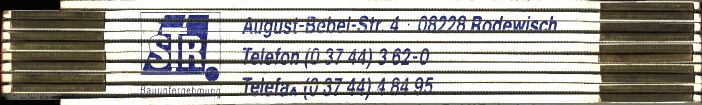 STR.
Bauunternehmung
August-Bebel-Str. 4 · 08228 Rodewisch
Telefon (0 37 44) 3 62-0
Telefax (0 37 44) 4 84 95